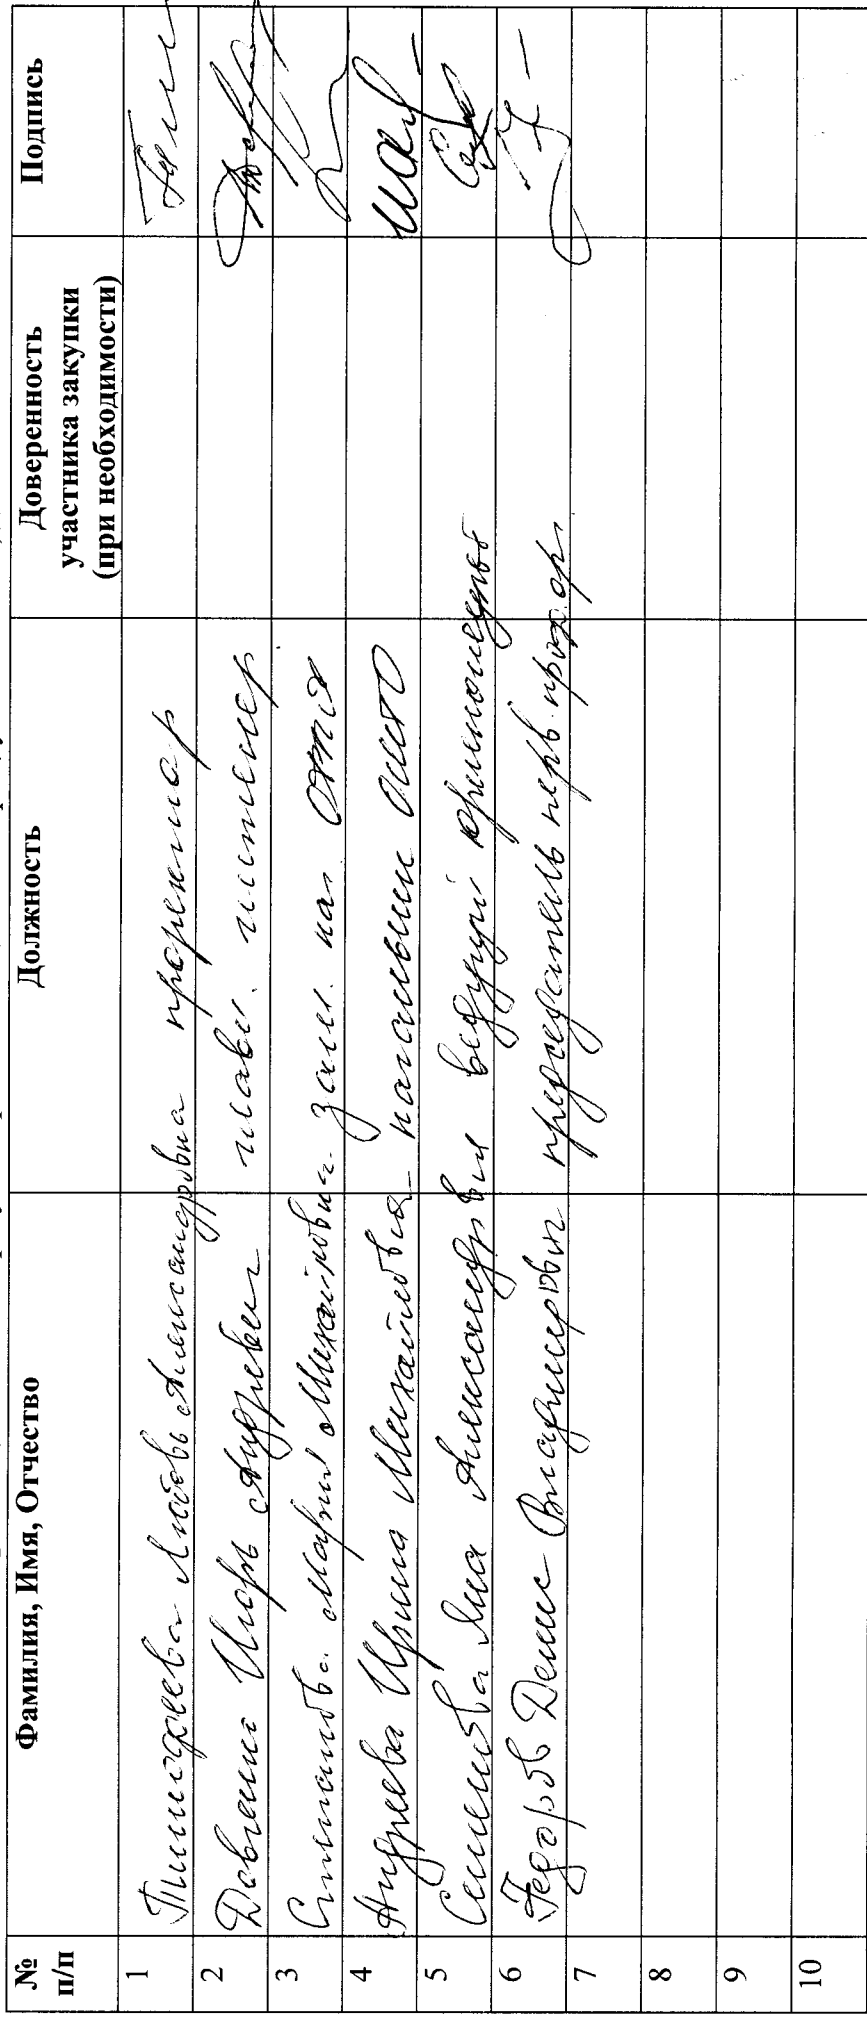 № п/п Фамилия, Имя, Отчество Должность Доверенность участника закупки (при необходимости) Подпись
1 Тимофеева Любовь Александровна проректор
2 Игорь Андреевич главн. инженер
3 Степанова Мария Михайловна зам. нач.
4 Андреева Ирина Михайловна начальник
5 Семенова Яна Александровна ведущий юрисконсульт
6 Федоров Денис Владимирович председатель перв. проф. орг.
7
8
9
10